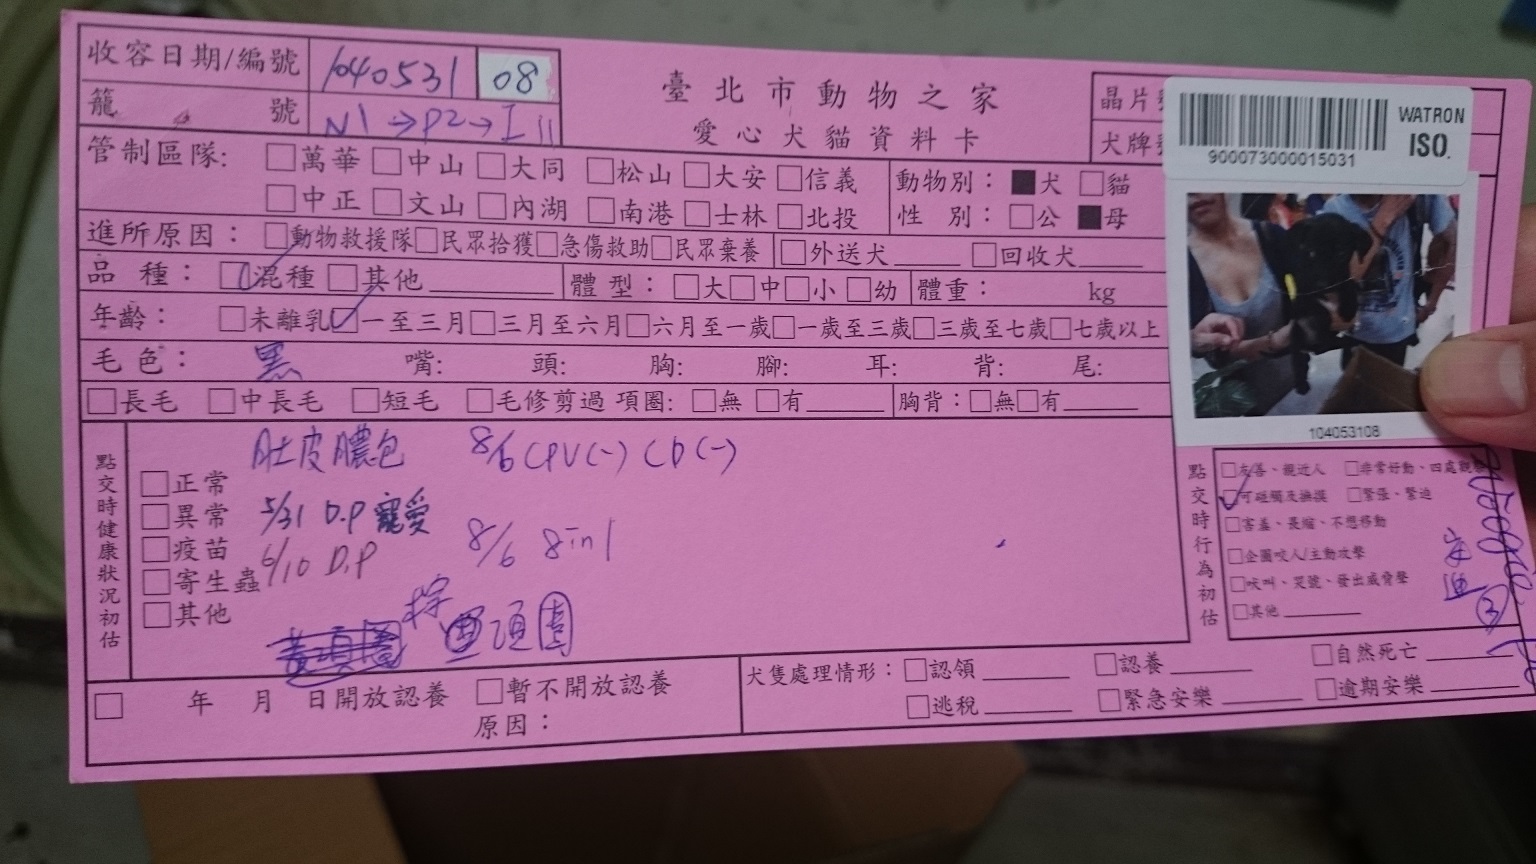 收容日期/編號 1040531 08
籠號 N1→P2→I11
臺北市動物之家
愛心犬貓資料卡
晶片
犬牌
WATRON
ISO.
900073000015031
管制區隊: □萬華 □中山 □大同 □松山 □大安 □信義
□中正 □文山 □內湖 □南港 □士林 □北投
動物別: ■犬 □貓
性別: □公 ■母
進所原因: □動物救援隊 □民眾拾獲 □急傷救助 □民眾棄養 □外送犬 □回收犬
品種: □混種 □其他 體型: □大 □中 □小 □幼 體重: kg
年齡: □未離乳 □一至三月 □三月至六月 □六月至一歲 □一歲至三歲 □三歲至七歲 □七歲以上
毛色: 黑 嘴: 頭: 胸: 腳: 耳: 背: 尾:
□長毛 □中長毛 □短毛 □毛修剪過 項圈: □無 □有 胸背: □無 □有
104053108
點交時健康狀況初估
□正常
□異常
□疫苗
□寄生蟲
□其他
肚皮膿包 8/6 CPV(-) CD(-)
5/31 D.P 寵愛
6/10 D.P 8/6 8in1
項圈
點交時行為初估
□友善、親近人 □非常好動、四處觀察
□可碰觸及撫摸 □緊張、緊迫
□害羞、畏縮、不想移動
□企圖咬人/主動攻擊
□吠叫、哭號、發出威脅聲
□其他
□ 年 月 日開放認養 □暫不開放認養
原因:
犬隻處理情形: □認領 □認養 □自然死亡
□逃稅 □緊急安樂 □逾期安樂